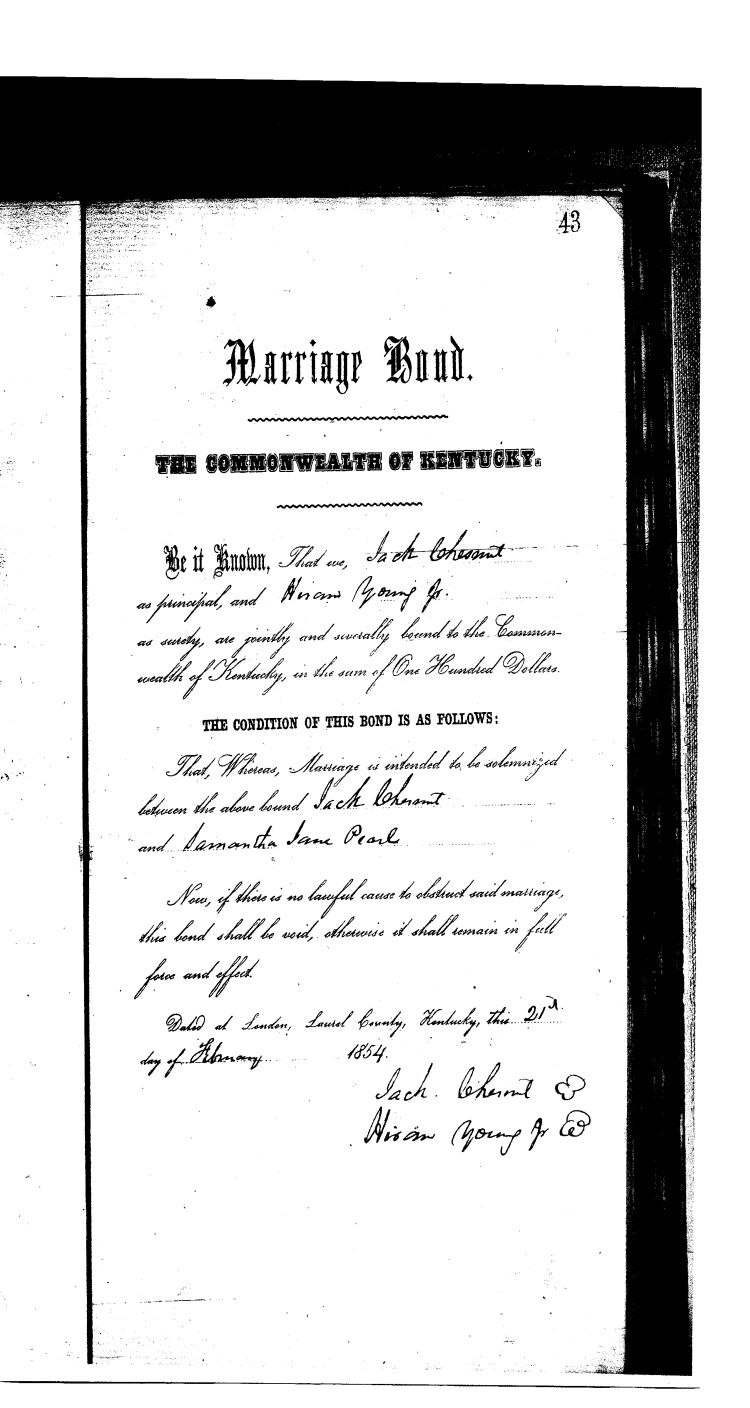 43
Marriage Bond.
THE COMMONWEALTH OF KENTUCKY.
Be it Known, That we, Jack Chesnut
as principal, and Hiram Young Jr.
as surety, are jointly and severally bound to the Common-
wealth of Kentucky, in the sum of One Hundred Dollars.
THE CONDITION OF THIS BOND IS AS FOLLOWS:
That, Whereas, Marriage is intended to be solemnized
between the above bound Jack Chesnut
and Samantha Jane Pearl
Now, if there is no lawful cause to obstruct said marriage,
this bond shall be void, otherwise it shall remain in full
force and effect.
Dated at London, Laurel County, Kentucky, this 21st
day of February 1854.
Jack. Chesnut
Hiram Young Jr